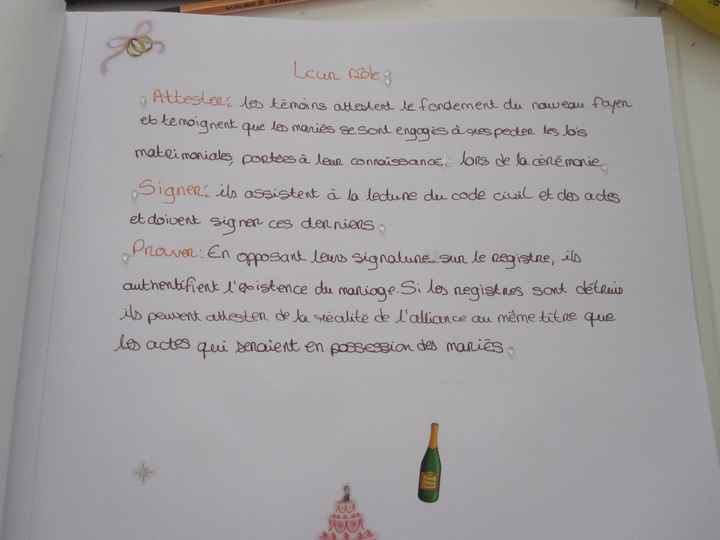 Leur rôle
Attester: les témoins attestent le fondement du nouveau foyer
et témoignent que les mariés se sont engagés à respecter les lois
matrimoniales, portées à leur connaissance, lors de la cérémonie.
Signer: ils assistent à la lecture du code civil et des actes
et doivent signer ces derniers.
Prouver: En opposant leurs signature sur le registre, ils
authentifient l'existence du mariage. Si les registres sont détruis
ils peuvent attester de la réalité de l'alliance au même titre que
les actes qui seraient en possession des mariés.